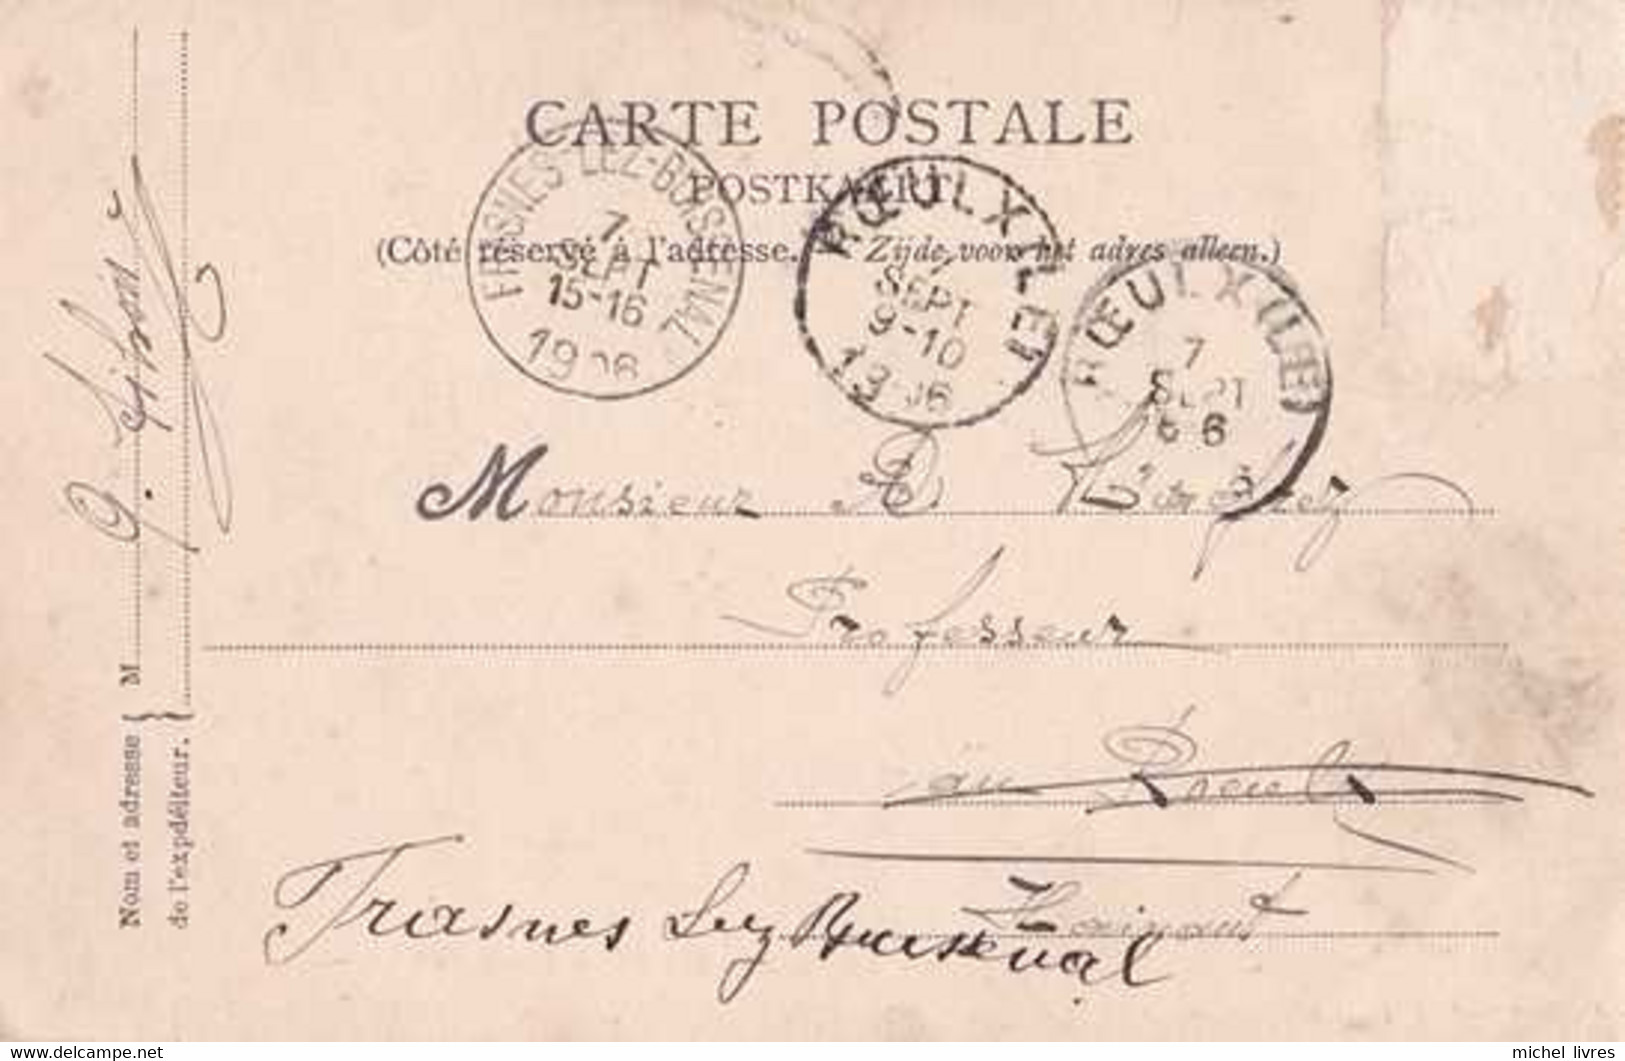 CARTE POSTALE
POSTKAART
(Côté réservé à l'adresse. — Zijde voor het adres alleen.)
FRASNES-LEZ-BUISSENAL
7
SEPT
15-16
1906
RŒULX (LE)
7
SEPT
9-10
1906
RŒULX (LE)
7
SEPT
6
Monsieur D.
Professeur
au Rœulx
Hainaut
Frasnes Lez Buissenal
Nom et adresse
de l'expéditeur.
M
michel_livres